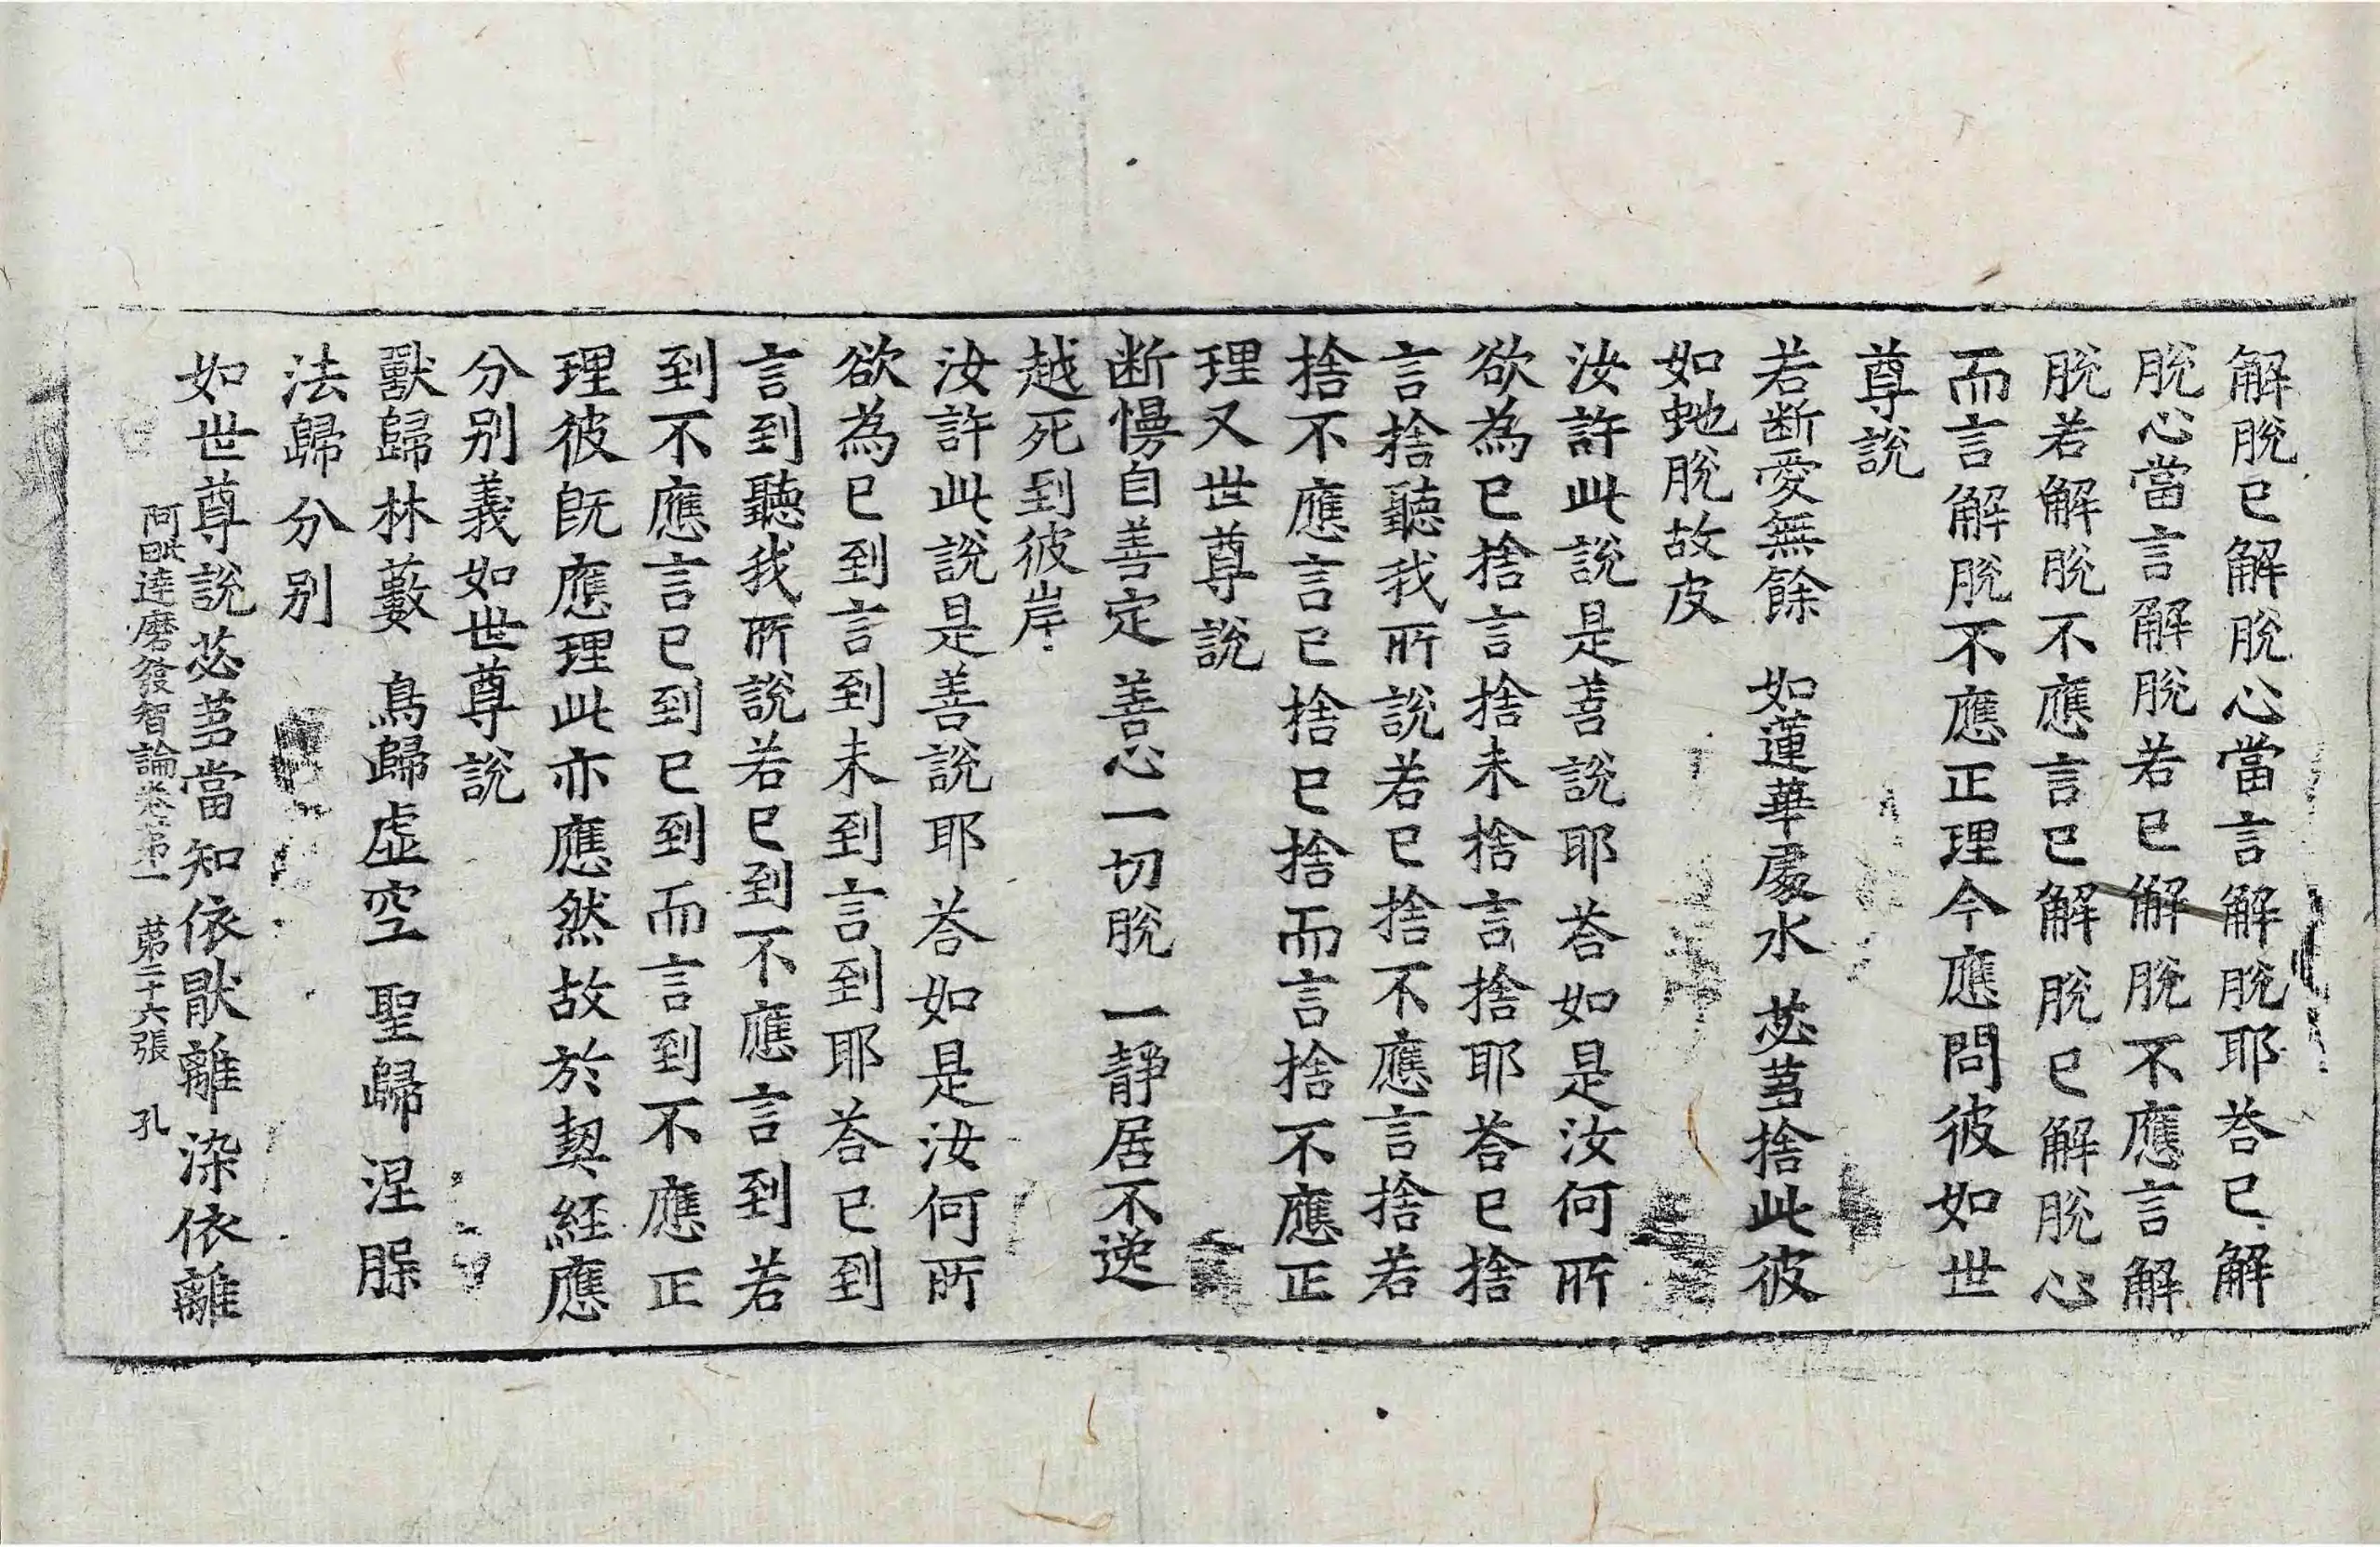 解脫已解脫心當言解脫耶荅已解
脫心當言解脫若已解脫不應言解
脫若解脫不應言已解脫已解脫心
而言解脫不應正理今應問彼如世
尊說
若断愛無餘　如蓮華處水　苾芻捨此彼
如虵脫故皮
汝許此說是善說耶荅如是汝何所
欲為已捨言捨未捨言捨耶荅已捨
言捨聽我所說若已捨不應言捨若
捨不應言已捨已捨而言捨不應正
理又世尊說
断慢自善定　善心一切脫　一靜居不逸
越死到彼岸
汝許此說是善說耶荅如是汝何所
欲為已到言到未到言到耶荅已到
言到聽我所說若已到不應言到若
到不應言已到已到而言到不應正
理彼旣應理此亦應然故於契經應
分別義如世尊說
獸歸林藪　鳥歸虛空　聖歸涅槃
法歸分別
如世尊說苾芻當知依猒離染依離
阿毗達磨發智論卷第一　第二十六張　孔